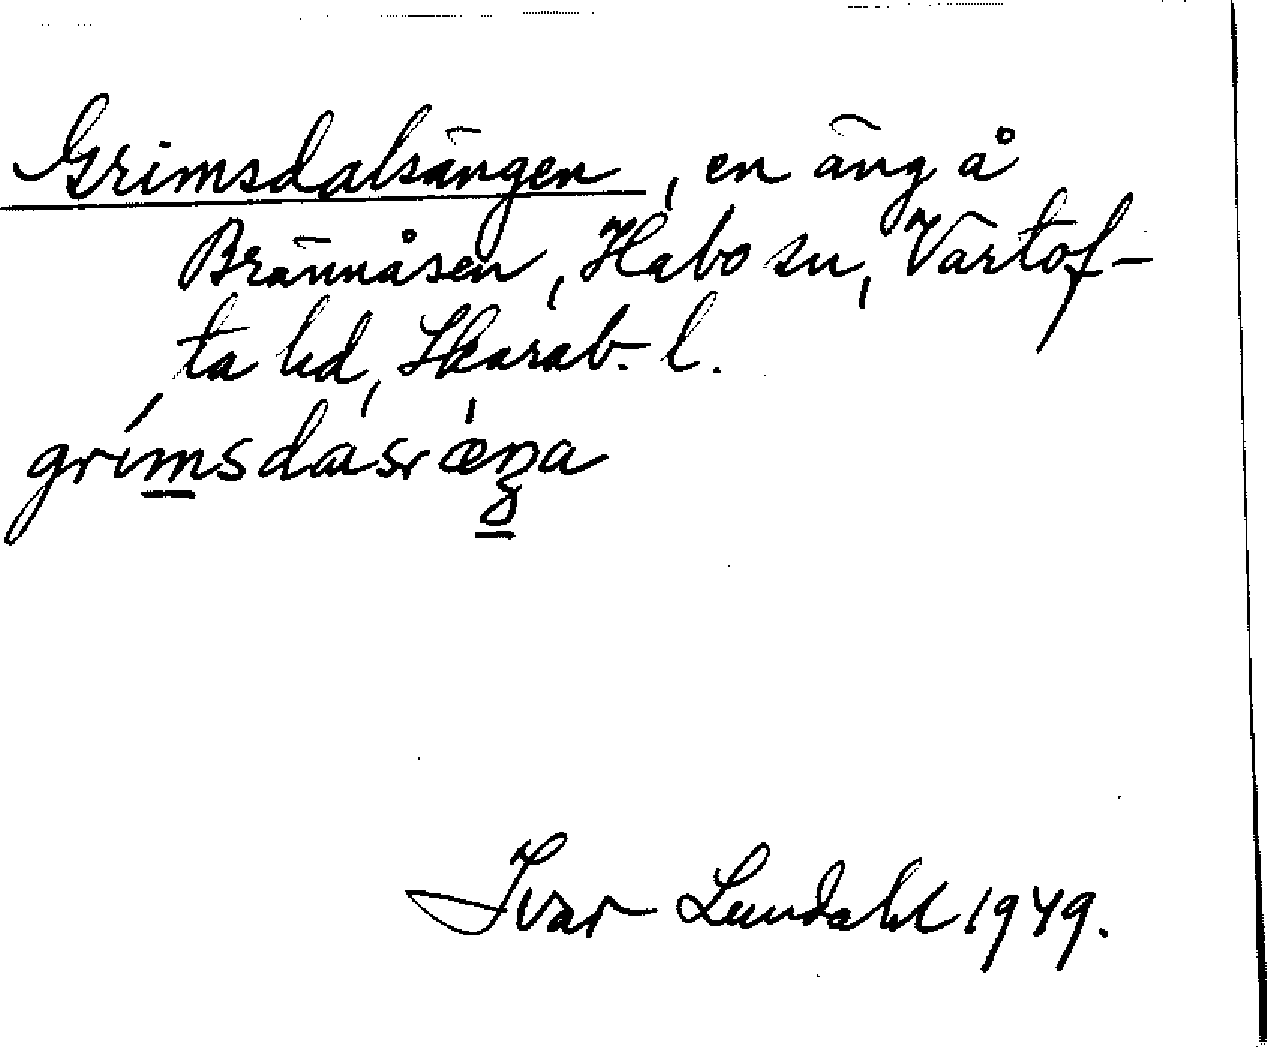 Grimsdalsängen, en äng å
Brännåsen, Habo sn, Vartof-
ta hd, Skarab. l.
Ivar Lundahl 1949.